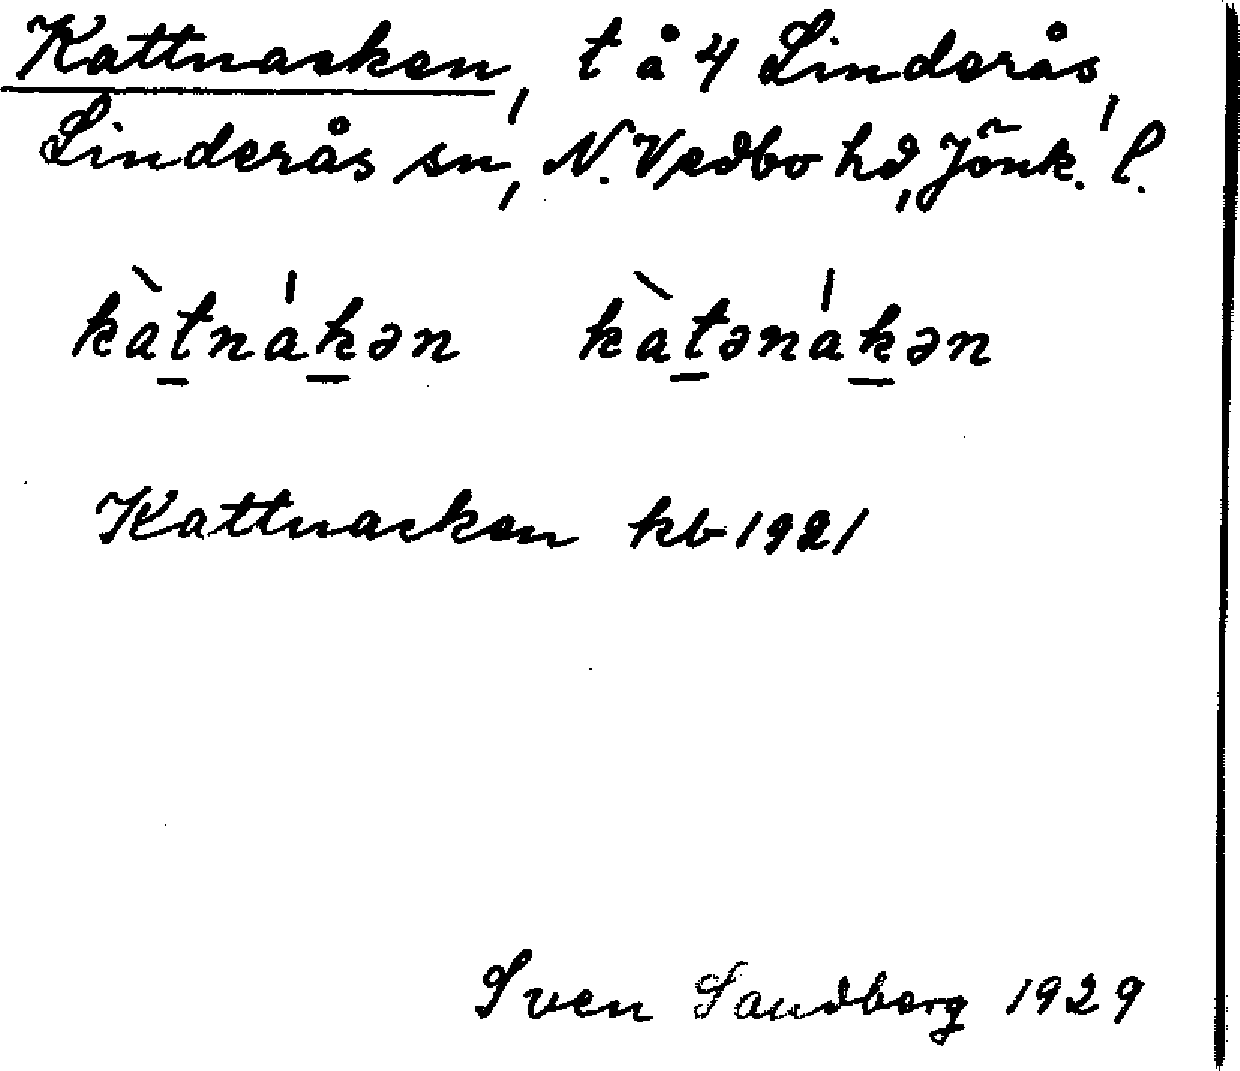 Kattnacken, t å 4 Linderås,
Linderås sn, N. Vedbo hd, Jönk. l.
kàt̲nák̲ən kàt̲ənák̲ən
Kattnacken kb 1921
Sven Sandberg 1929